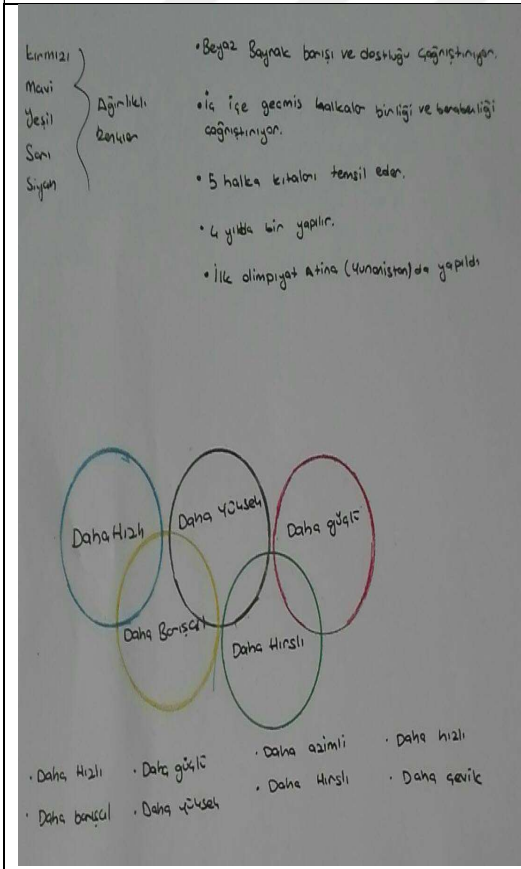 Kırmızı
Mavi
Yeşil
Sarı
Siyah
Ağırlıklı
Renkler
• Beyaz Bayrak barışı ve dostluğu çağrıştırıyor.
• İç içe geçmiş halkalar birliği ve beraberliği
çağrıştırıyor.
• 5 halka kıtaları temsil eder.
• 4 yılda bir yapılır.
• İlk olimpiyat Atina (Yunanistan)da yapıldı
Daha Hızlı
Daha Yüksek
Daha güçlü
Daha Barışçıl
Daha Hırslı
• Daha Hızlı • Daha güçlü • Daha azimli • Daha hızlı
• Daha barışçıl • Daha yüksek • Daha Hırslı • Daha çevik